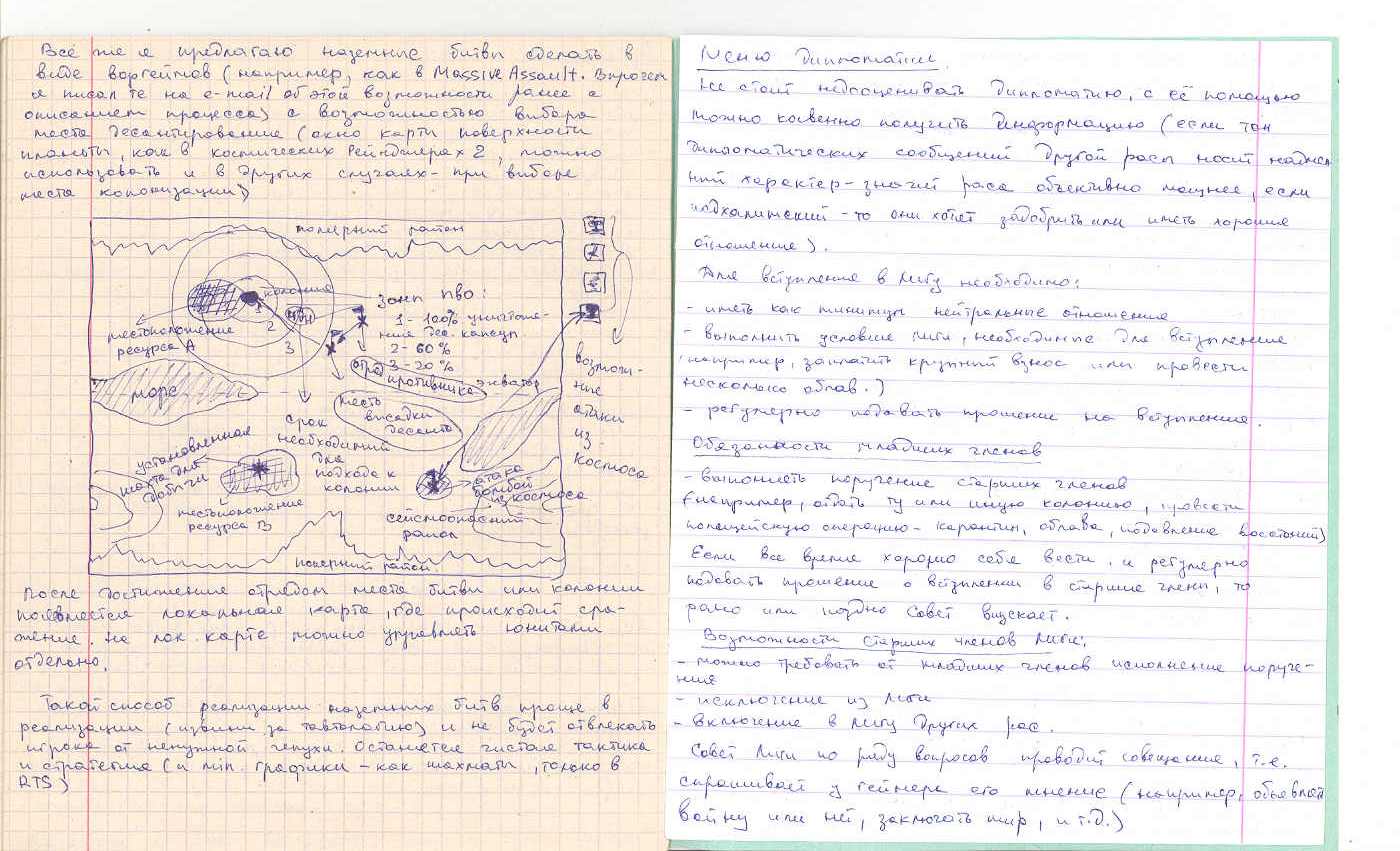 Всё же я предлагаю наземные битвы сделать в
виде воргеймов (например, как в Massive Assault. Впрочем
я писал те на e-mail об этой возможности ранее с
описанием процесса) с возможностью выбора
места десантирование (окно карты поверхности
планеты, как в космических Рейнджерах 2, можно
использовать и в других случаях - при выборе
места колонизации)
полярный район
колония
зоны ПВО:
1 - 100% уничтоже-
ние дес. капсул
2 - 60%
3 - 20%
1
2
3
местоположение
ресурса А
отряд
противника
экватор
море
место
высадки
десанта
срок
необходимый
для
подхода к
колонии
установленная
шахта для
добычи
местоположение
ресурса В
атака
бомбой
из космоса
сейсмоопасный
район
полярный район
2
возмож-
ные
атаки
из
космоса
После достижение отрядом места битвы или колонии
появляется локальная карта, где происходит сра-
жение. На лок. карте можно управлять юнитами
отдельно.
Такой способ реализации наземных битв проще в
реализации (извини за тавтологию) и не будет отвлекать
игрока от ненужной чепухи. Останется чистая тактика
и стратегия (и min. графики - как шахматы, только в
RTS)
Меню дипломатии
Не стоит недооценивать дипломатию, с её помощью
можно косвенно получить информацию (если тон
дипломатических сообщений другой расы носит надмен
ний характер - значит раса объективно мощнее, если
подхалимский - то они хотят задобрить или иметь хорошие
отношение).
Для вступление в Лигу необходимо:
- иметь как минимум нейтральные отношение
- выполнить условие лиги, необходимые для вступление
(например, заплатить крупный взнос или провести
несколько облав.)
- регулярно подавать прошение на вступление.
Обязанности младших членов
- выполнять поручение старших членов
(например, отдать ту или иную колонию, провести
полицейскую операцию - карантин, облава, подавление восстаний)
Если все время хорошо себя вести, и регулярно
подавать прошение о вступлении в старшие члены, то
рано или поздно Совет впускает.
Возможности старших членов Лиги:
- можно требовать от младших членов исполнение поруче-
ния
- исключение из Лиги
- включение в Лигу других рас.
Совет Лиги по ряду вопросов проводит совещание, т.е.
спрашивает у геймера его мнение (например, объявлять
войну или нет, заключать мир, и т.д.)